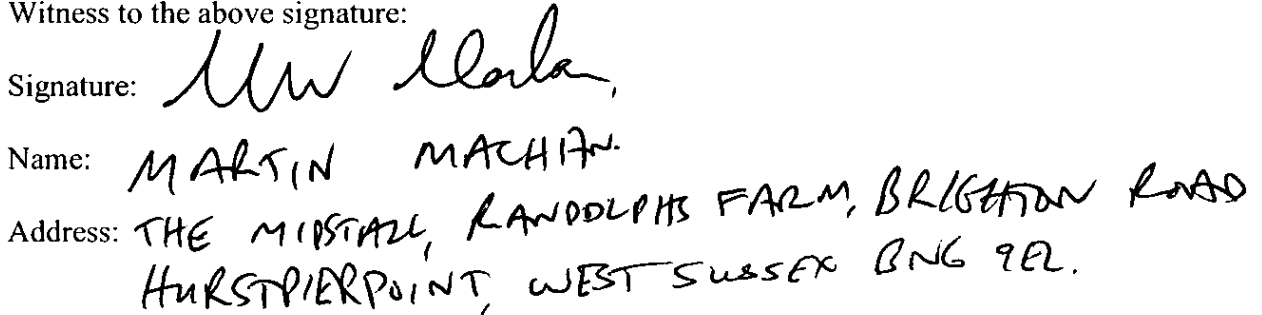 Witness to the above signature:
Signature:
Name: MARTIN MACHAN.
Address: THE MIDSTALL, RANDOLPHS FARM, BRIGHTON ROAD
HURSTPIERPOINT, WEST SUSSEX BN6 9EL.